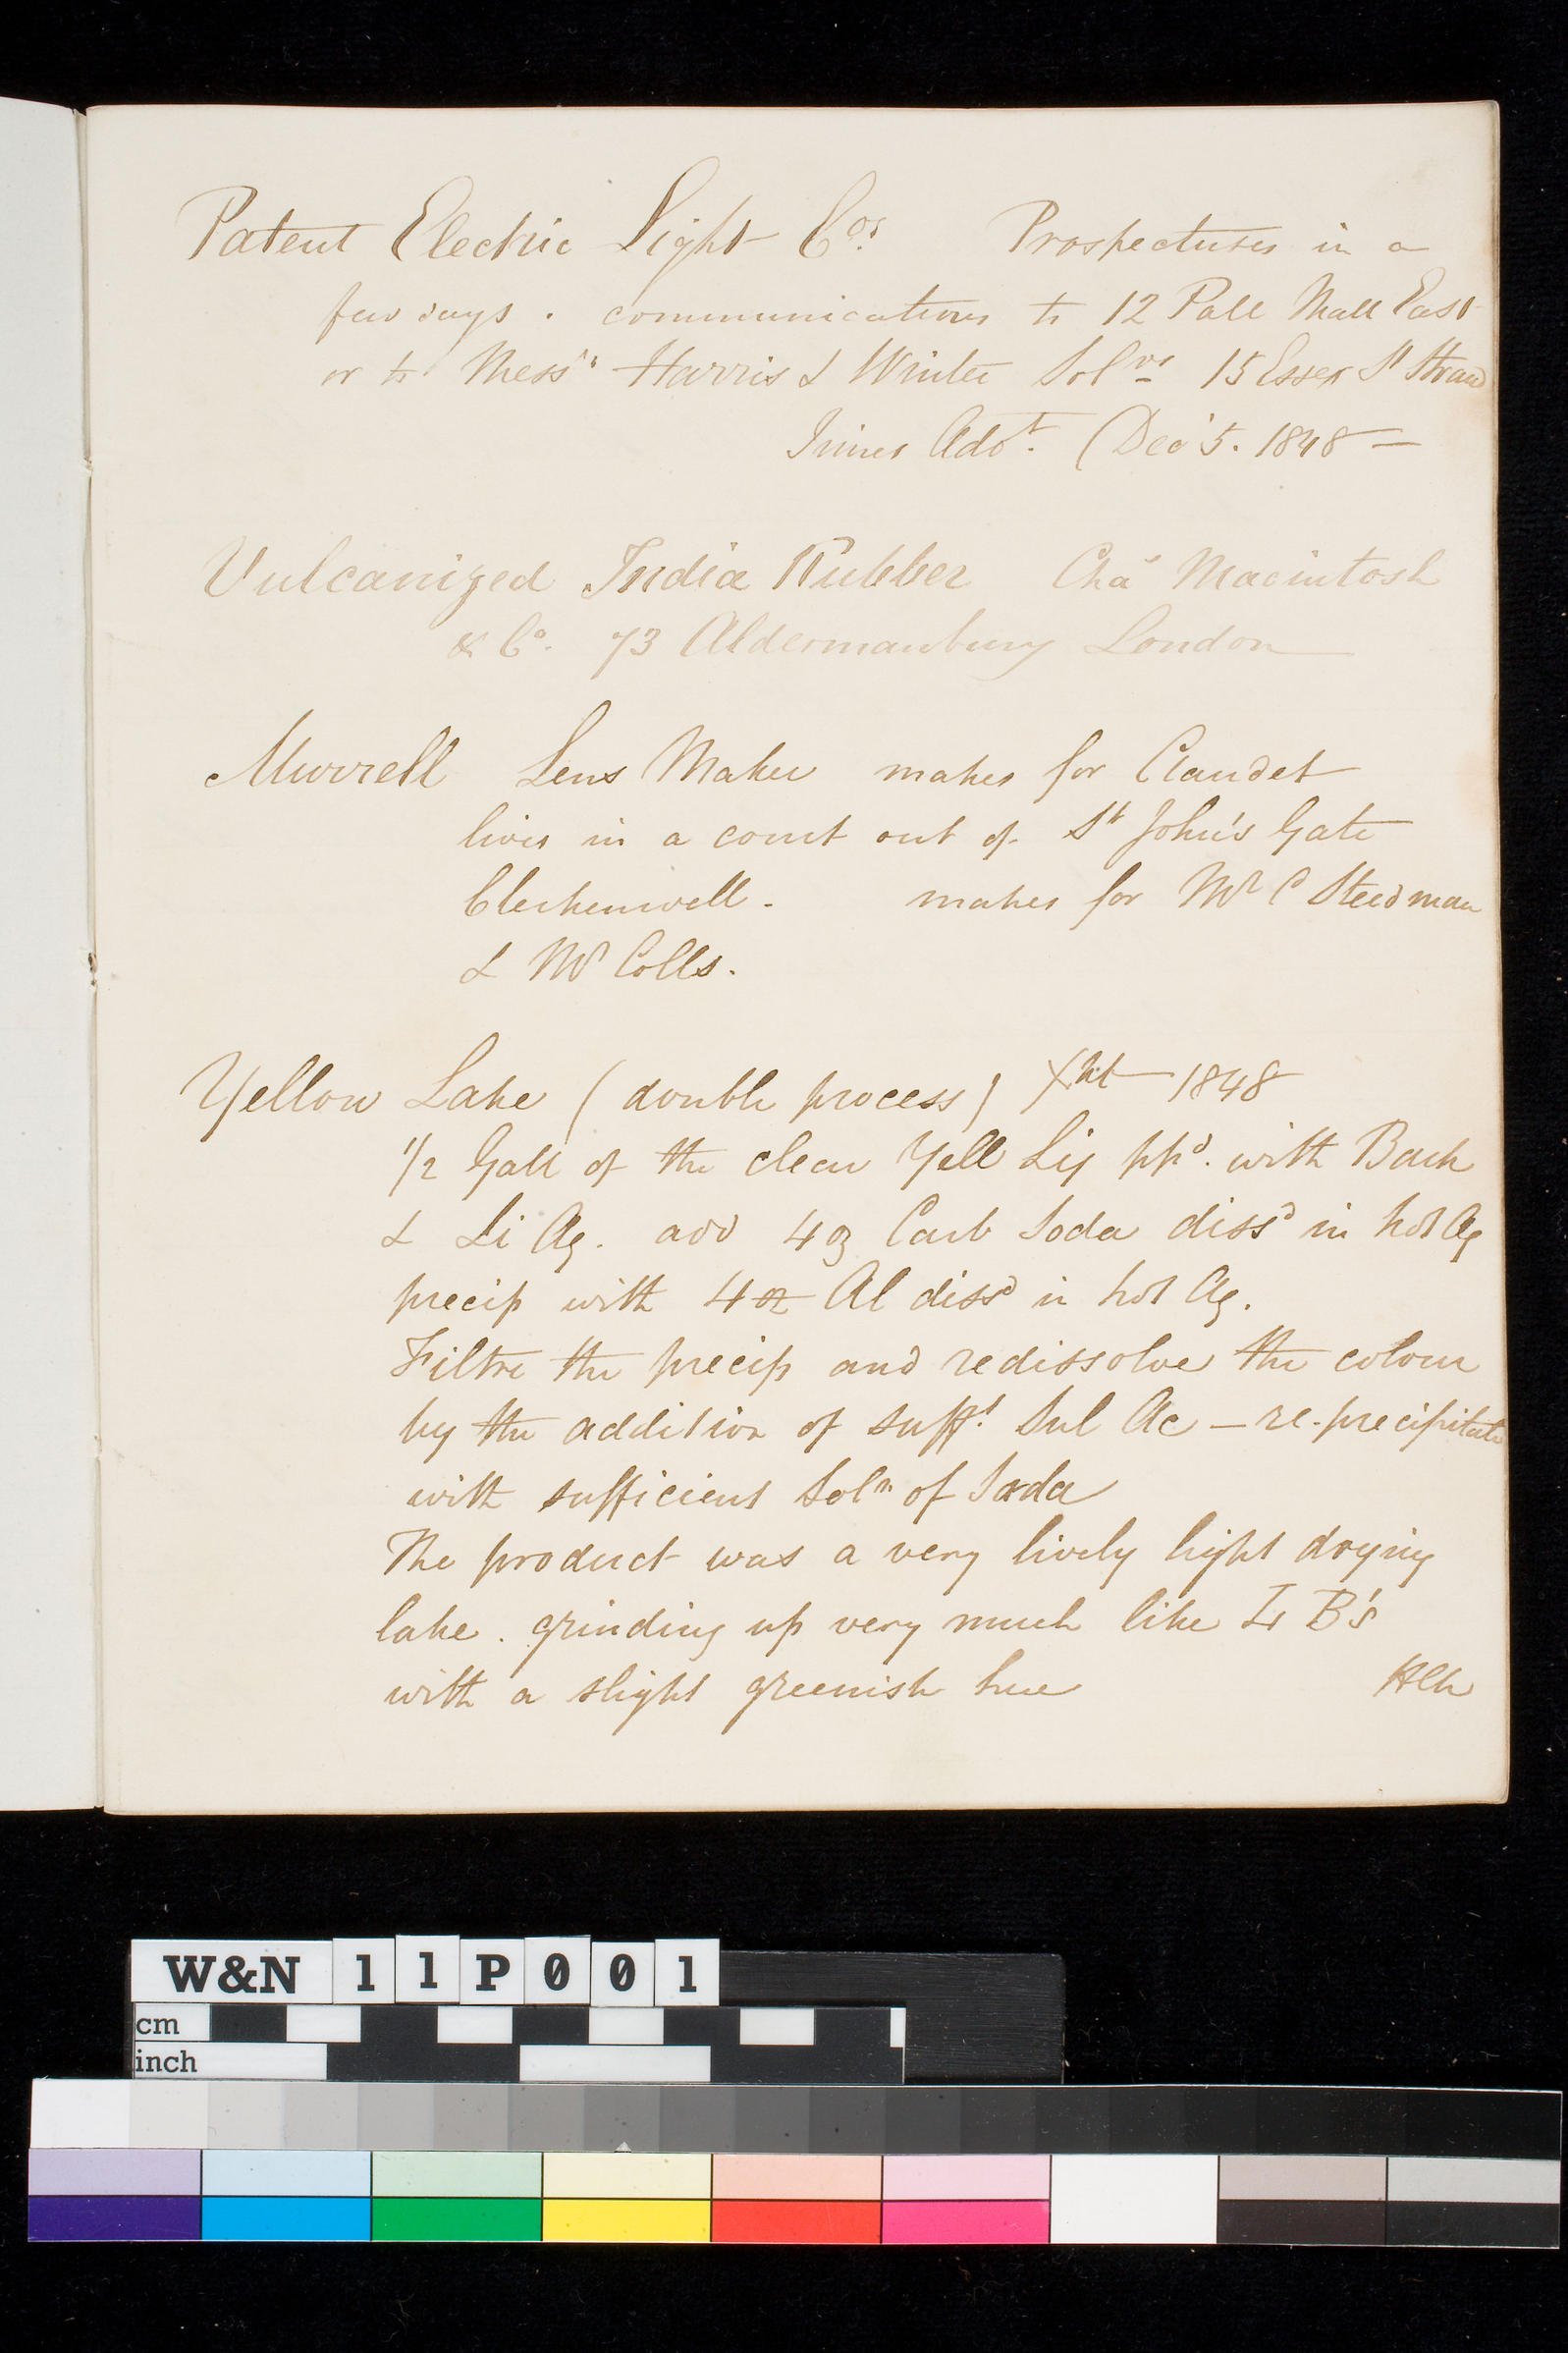 Patent Electric Light Cos. Prospectuses in a
few days . communications to 12 Pall Mall East
or to Messrs Harris & Winter Solrs 15 Essex St Strand
Times Advt. (Dec 5. 1848 —
Vulcanized India Rubber Chas Macintosh
& Co. 73 Aldermanbury London
Murrell Lens Maker makes for Claudet
lives in a court out of St John's Gate
Clerkenwell - makes for Mr C Steedman
& Mr Colls.
Yellow Lake (double process) 1848
1/2 Gall of the clear Yell Liq ppd. with Bark
& Li Aq. add 4 oz Carb Soda dissd in hot Aq
precip with 4 oz Al dissd in hot Aq.
Filtre the precip and redissolve the colour
by the addition of sufft. Sul Ac — re-precipitate
with sufficient Soln of Soda
The product was a very lively light drying
lake . grinding up very much like B's
with a slight greenish hue
W&N 11P001
cm
inch